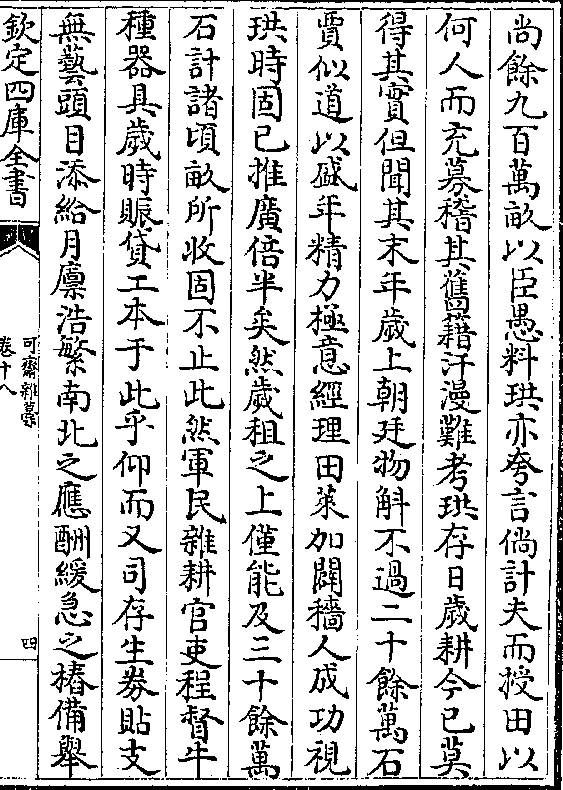 尚餘九百萬畝以臣愚料珙亦夸言倘計夫而授田以
何人而充募稽其舊籍汗漫難考珙存日歲耕今已莫
得其實但聞其末年歲上朝廷物斛不過二十餘萬石
賈似道以盛年精力極意經理田萊加闢穡人成功視
珙時固已推廣倍半矣然歲租之上僅能及三十餘萬
石計諸頃畝所收固不止此然軍民雜耕官吏程督牛
種器具歲時賑貸工本于此乎仰而又司存生劵貼支
無藝頭目添給月廪浩繁南北之應酬緩急之樁備舉
欽定四庫全書
可齋雜藁
卷十八
四